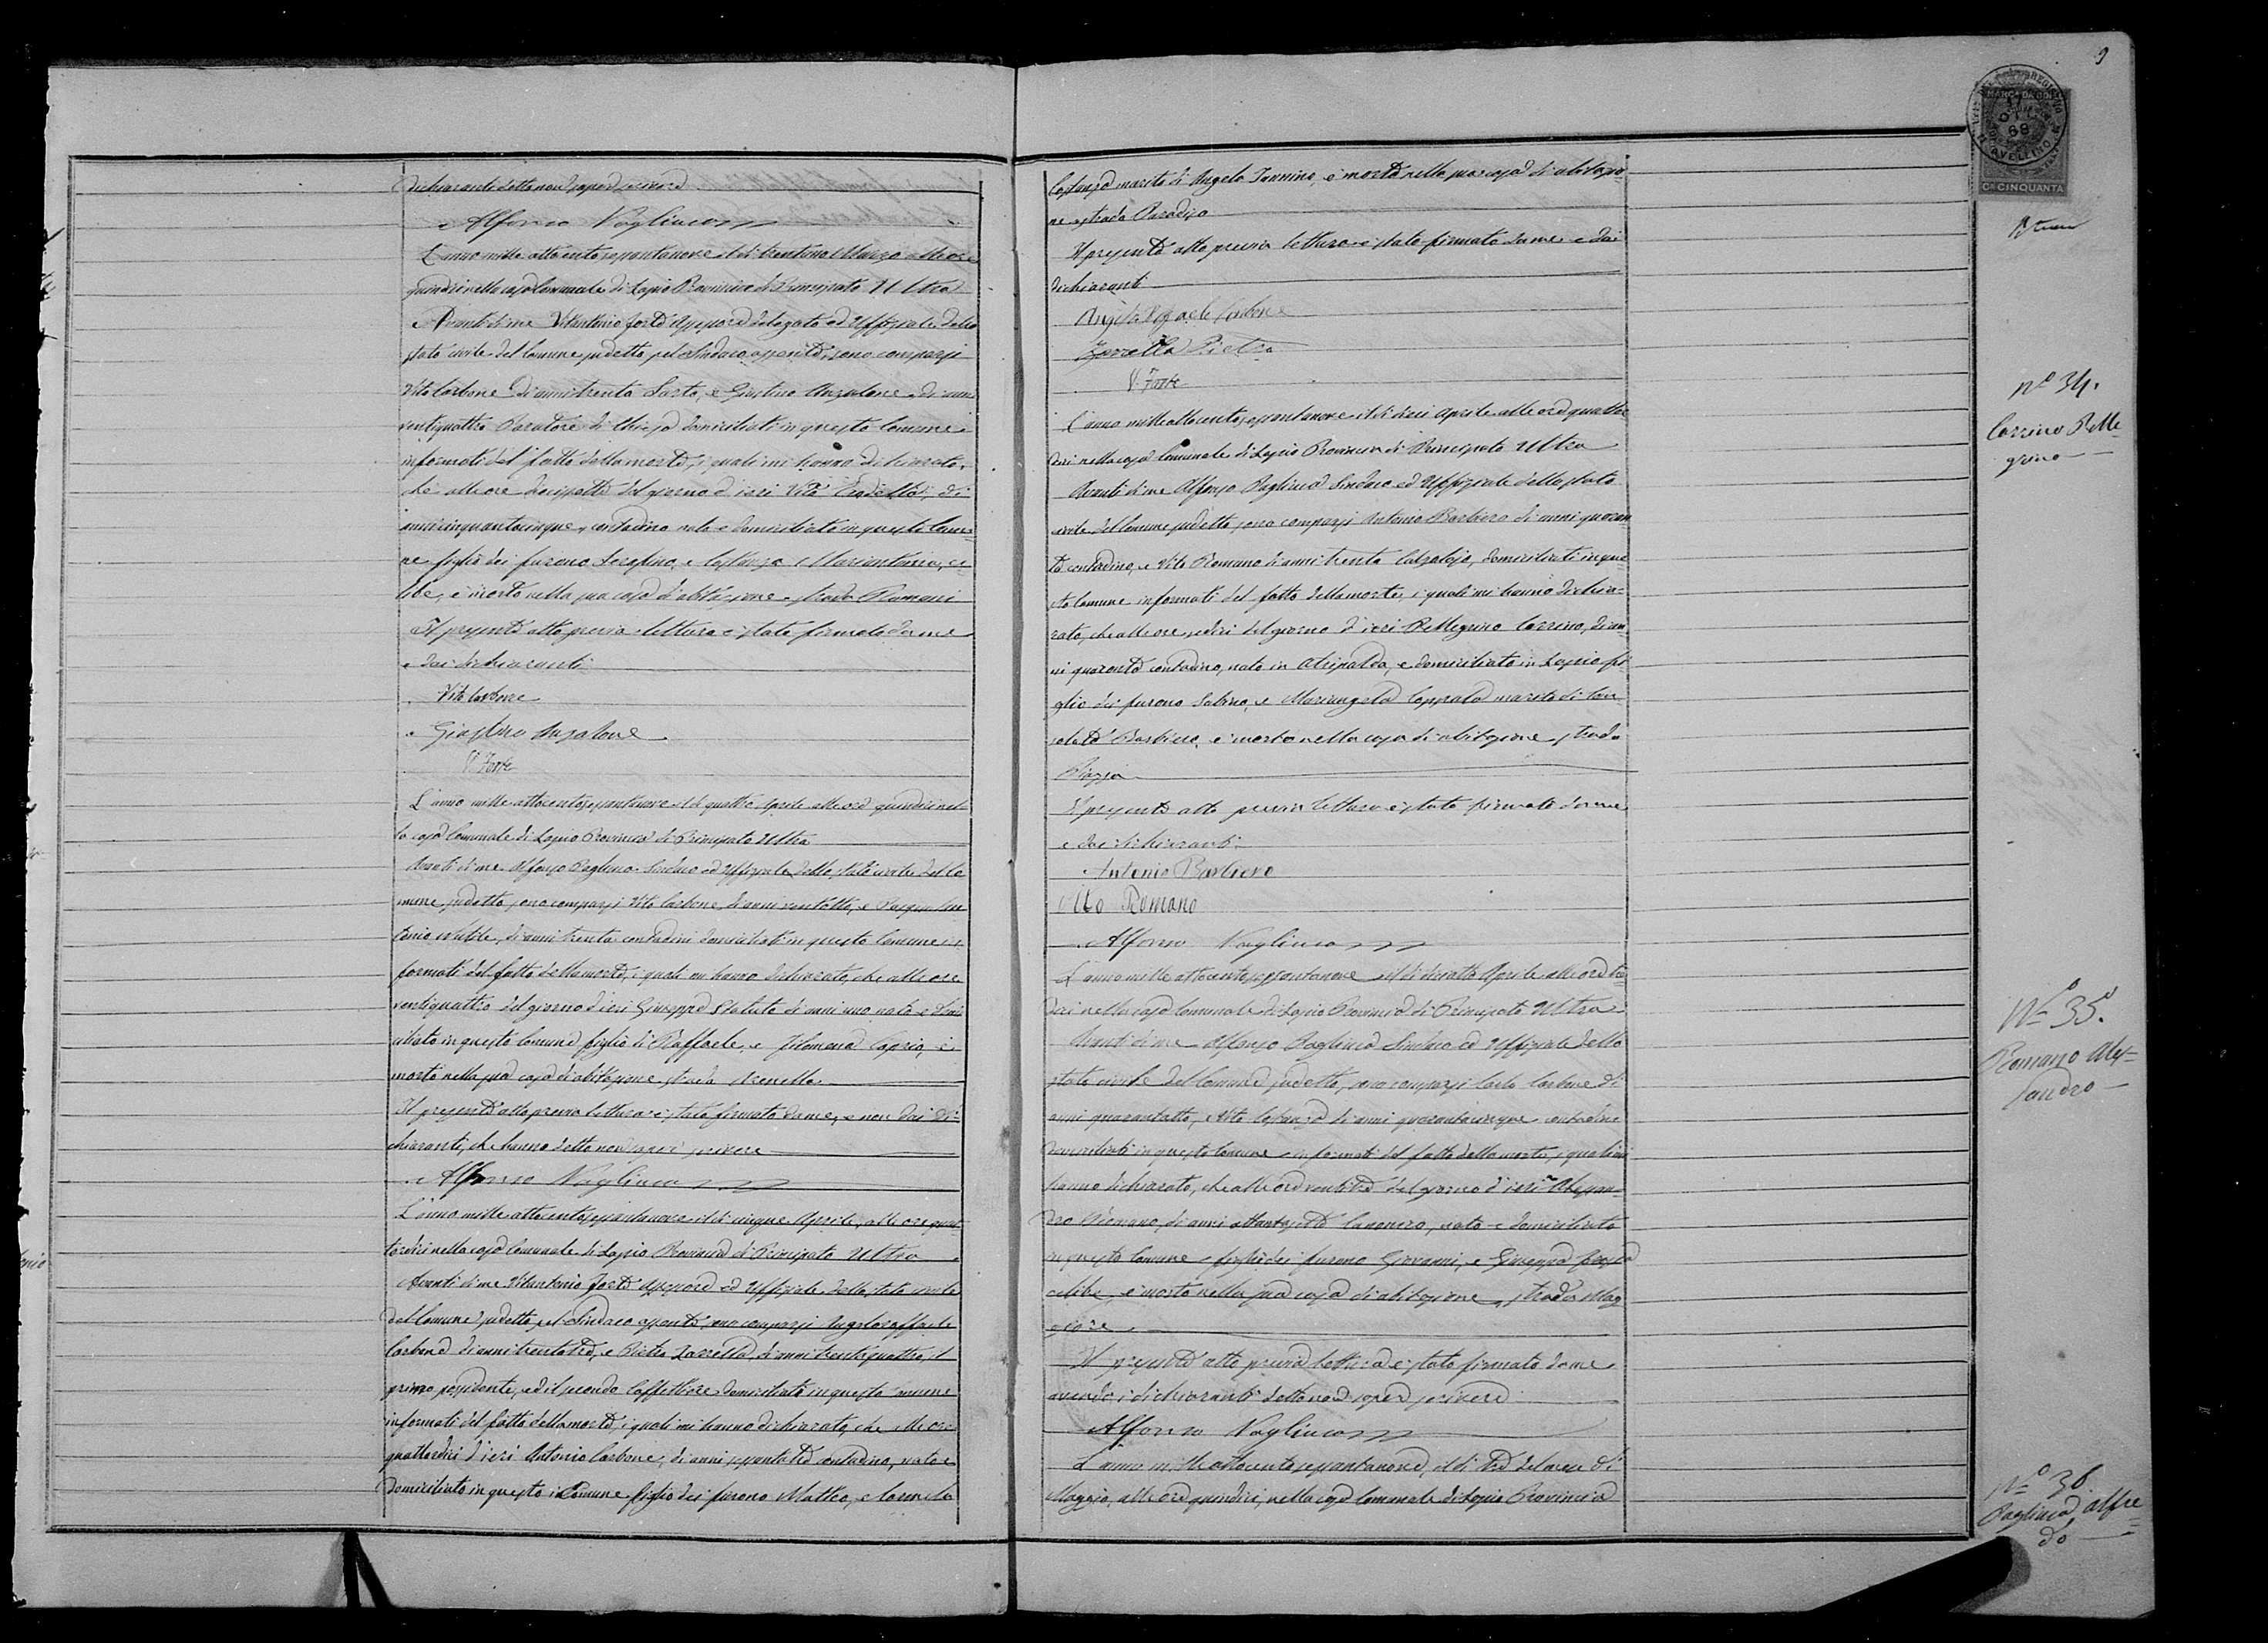 dichiarante detto non saper scrivere
Alfonso Vagliuca
L'anno mille ottocento sessantanove il dì trentuno Marzo alle ore
quindici nella casa Comunale di Lapio Provincia di Principato Ultra
Avanti di me Vitantonio Forte Assessore delegato ed Uffiziale dello
stato civile del Comune sudetto pel Sindaco assente, sono comparsi
Vito Carbone di anni trenta Sarto, e Giustino Anzalone di anni
ventiquattro Paratore di Chiesa domiciliati in questo Comune
informati del fatto della morte, i quali mi hanno dichiarato,
che alle ore diecisette del giorno d'ieri Vito di
anni cinquantacinque, contadino nato e domiciliato in questo Comu=
ne figlio dei furono Serafino, e Costanza ce=
libe, è morto nella sua casa d'abitazione strada Romani
Il presente atto previa lettura è stato firmato da me
e dai dichiaranti
Vito Carbone
Giustino Anzalone
V. Forte
L'anno mille ottocento sessantanove il dì quattro Aprile alle ore quindici nel
la casa Comunale di Lapio Provincia di Principato Ultra
Avanti di me Alfonso Vagliuca Sindaco ed Uffiziale dello stato civile del Co
mune sudetto sono comparsi Vito Carbone di anni ventotto, e
di anni trenta contadini domiciliati in questo Comune in
formati del fatto della morte, i quali mi hanno dichiarato, che alle ore
ventiquattro del giorno d'ieri Giuseppe Statuto di anni uno nato e domi
ciliato in questo Comune figlio di Raffaele, e Filomena Caprio, è
morto nella sua casa di abitazione strada Arenella
Il presente atto previa lettura è stato firmato da me, e non dai di=
chiaranti, che hanno detto non saper scrivere
Alfonso Vagliuca
L'anno mille ottocento sessantanove il dì cinque Aprile, alle ore quat
tordici nella casa Comunale di Lapio Provincia di Principato Ultra
Avanti di me Vitantonio Forte Assessore ed Uffiziale dello stato civile
del Comune sudetto pel Sindaco assente, sono comparsi Angeloraffaele
Carbone di anni trentatre, e Pietro Zarrella, di anni trentiquattro, il
primo possidente, ed il secondo Caffettiere domiciliati in questo comune
informati del fatto della morte, i quali mi hanno dichiarato, che alle ore
quattordici d'ieri Antonio Carbone, di anni sessantatre contadino, nato e
domiciliato in questo Comune figlio dei furono Matteo, e Carmela
9
MARCA DA BOLLO
17
OTT
68
AVELLINO
CN CINQUANTA
Costanza marito di Angela Iannino, è morto nella sua casa di abitazio=
ne strada Paradiso
Il presente atto previa lettura è stato firmato da me e dai
dichiaranti
Angelo Rafaele Carbone
Zarrella Pietro
V. Forte
N° 34.
Carrino Pelle
grino
L'anno mille ottocento sessantanove il dì dieci Aprile alle ore quattor
dici nella casa Comunale di Lapio Provincia di Principato Ultra
Avanti di me Alfonso Vagliuca Sindaco ed Uffiziale dello stato
civile del Comune sudetto sono comparsi Antonio Barbiero di anni quaran
ta contadino, e Vito Romano di anni trenta Calzolajo, domiciliati in que
sto Comune informati del fatto della morte, i quali mi hanno dichia=
rato, che alle ore sedici del giorno d'ieri Pellegrino Carrino, di an
ni quaranta contadino, nato in Atripalda, e domiciliato in Lapio fi
glio dei furono Sabino, e Mariangela marito di Con
solata Barbiero, è morto nella casa di abitazione strada
Piazza
Il presente atto previa lettura è stato firmato da me
e dai dichiaranti
Antonio Barbiero
Vito Romano
Alfonso Vagliuca
N° 35.
Romano Ales=
sandro
L'anno mille ottocento sessantanove il dì diciotto Aprile alle ore tre
dici nella casa Comunale di Lapio Provincia di Principato Ultra
Avanti di me Alfonso Vagliuca Sindaco ed Uffiziale dello
stato civile del Comune sudetto, sono comparsi Carlo Carbone di
anni quarantotto, e Vito Costanza di anni quarantacinque contadini
domiciliati in questo Comune informati del fatto della morte, i quali mi
hanno dichiarato, che alle ore ventitre del giorno d'ieri Alessan=
dro Romano, di anni ottantasette nato e domiciliato
in questo Comune figlio dei furono Giovanni, e Giuseppa
celibe, è morto nella sua casa di abitazione strada Mag
giore
Il presente atto previa lettura è stato firmato da me
avendo i dichiaranti detto non saper scrivere
Alfonso Vagliuca
N° 36.
Vagliuca Alfre
do
L'anno mille ottocento sessantanove, il dì tre del mese di
Maggio, alle ore quindici, nella casa Comunale di Lapio Provincia